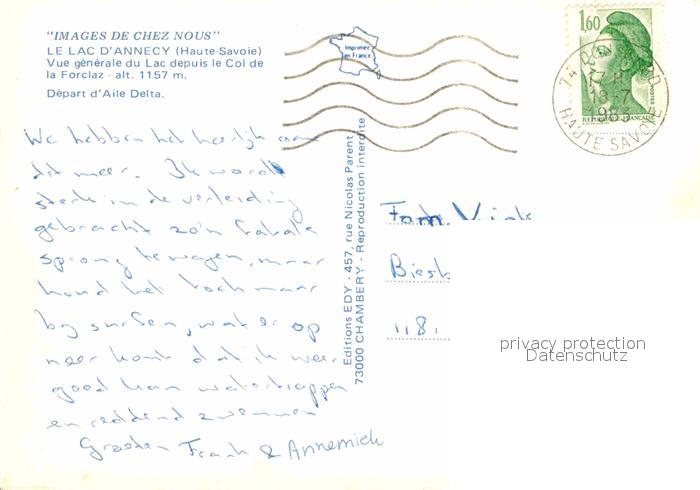 "IMAGES DE CHEZ NOUS"
LE LAC D'ANNECY (Haute-Savoie)
Vue générale du Lac depuis le Col de
la Forclaz - alt. 1157 m.
Départ d'Aile Delta.
Imprimée
en France
1,60
POSTES
REPUBLIQUE FRANÇAISE
74
18-7
1983
HAUTE SAVOIE
We hebben het heerlijk aan
dit meer. Ik word
sterk in de verleiding
gebracht zo'n fatale
sprong te wagen, maar
houd het toch maar
bij surfen, wat er op
neer komt dat ik weer
goed kan watertrappen
en reddend zwemmen
Groeten Frank & Annemiek
Editions EDY - 457, rue Nicolas Parent
73000 CHAMBERY - Reproduction interdite
Fam. Vink
Biesb
1181
privacy protection
Datenschutz